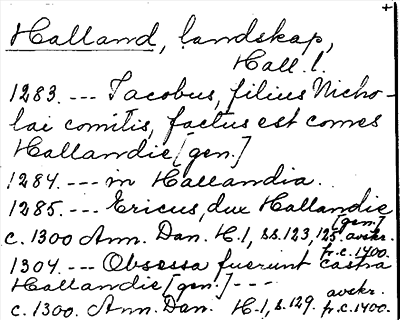 +
Halland, landskap,
Hall. l.
1283. --- Jacobus, filius Nicho-
lai comitis, factus est comes
Hallandie [gen.]
1284. --- in Hallandia.
1285. --- Ericus, dux Hallandie
[gen.]
c. 1300 Ann. Dan. H. 1, ss. 123, 125. avskr.
fr. c. 1400.
1304. --- Obsessa fuerunt castra
Hallandie [gen.] ---
avskr.
c. 1300. Ann. Dan. H. 1, s. 129. fr. c. 1400.